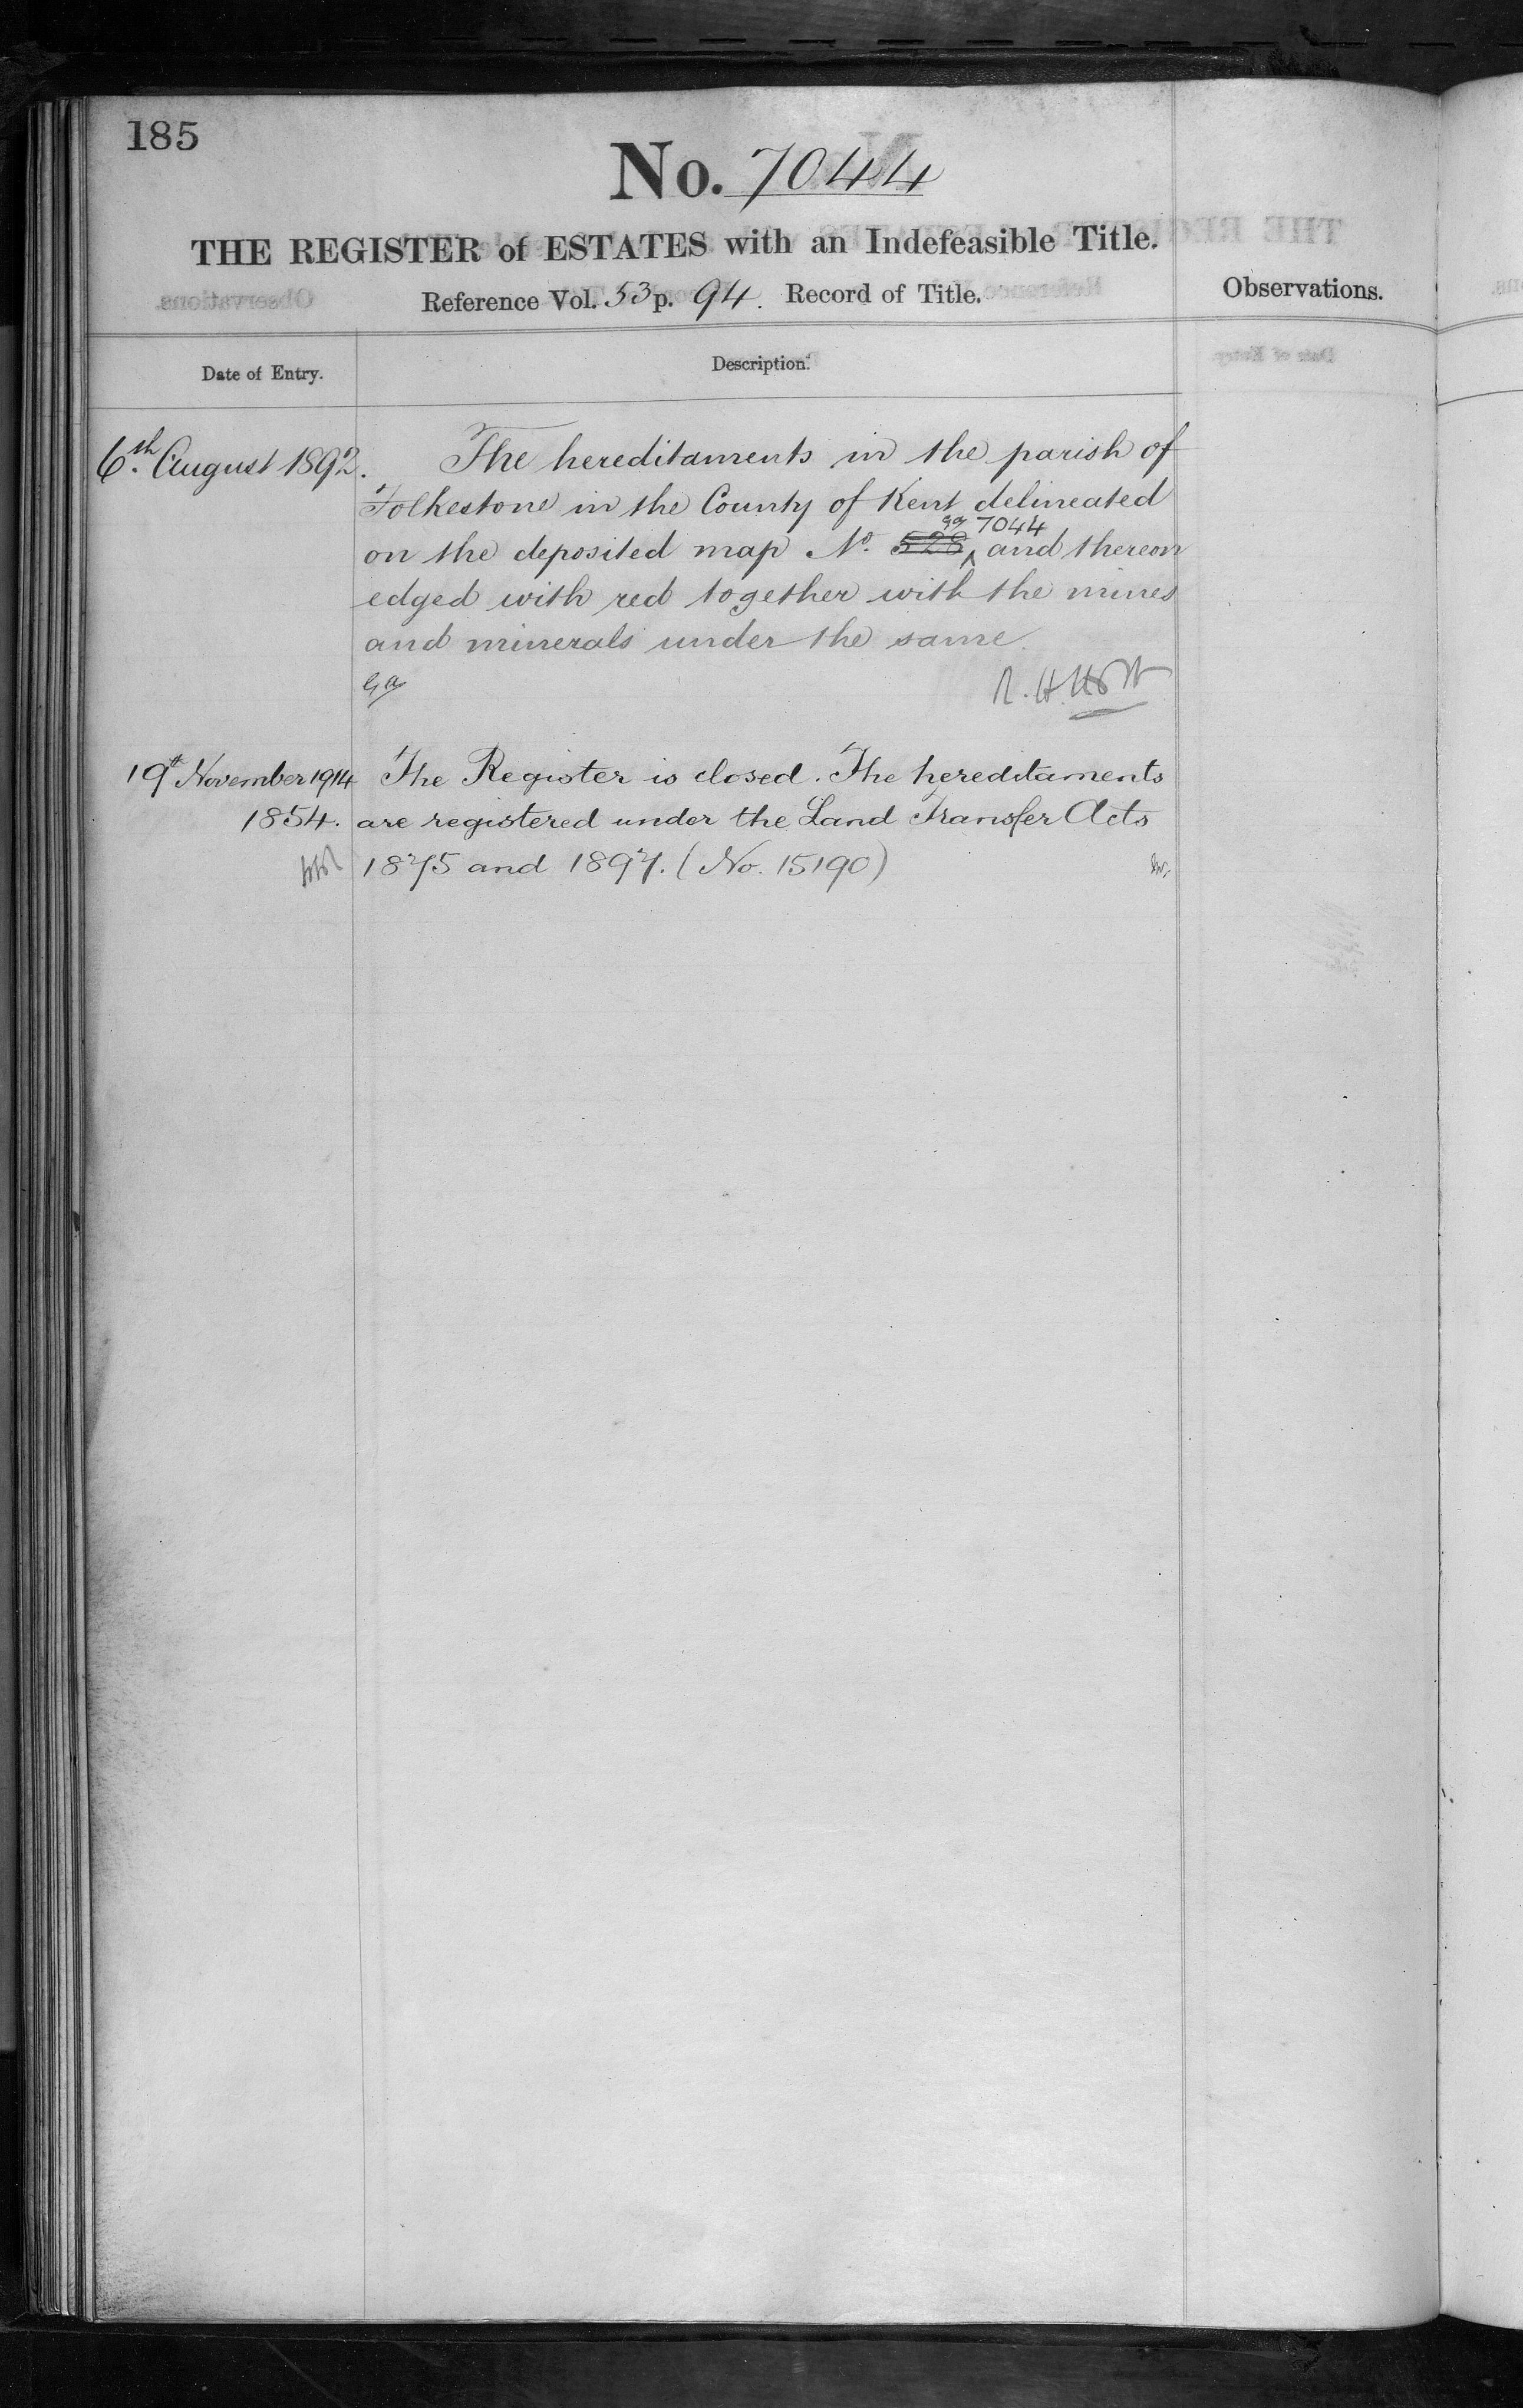 185
No. 7044
THE REGISTER of ESTATES with an Indefeasible Title.
Reference Vol. 53 p. 94. Record of Title.
Observations.
Date of Entry.
Description.
6th. August 1892.
The hereditaments in the parish of
Folkestone in the County of Kent delineated
on the deposited map No. 528 7044 and thereon
edged with red together with the mines
and minerals under the same.
19th November 1914
1854.
The Register is closed. The hereditaments
are registered under the Land Transfer Acts
1875 and 1897. (No. 15190)